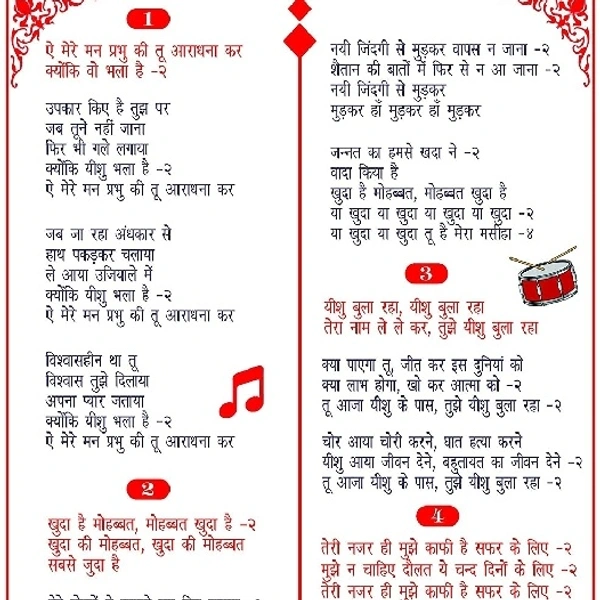 1
ऐ मेरे मन प्रभु की तू आराधना कर
क्योंकि वो भला है -२
उपकार किए है तुझ पर
जब तूने नहीं जाना
फिर भी गले लगाया
क्योंकि यीशु भला है -२
ऐ मेरे मन प्रभु की तू आराधना कर
जब जा रहा अंधकार से
हाथ पकड़कर चलाया
ले आया उजियाले में
क्योंकि यीशु भला है -२
ऐ मेरे मन प्रभु की तू आराधना कर
विश्वासहीन था तू
विश्वास तुझे दिलाया
अपना प्यार जताया
क्योंकि यीशु भला है -२
ऐ मेरे मन प्रभु की तू आराधना कर
2
खुदा है मोहब्बत, मोहब्बत खुदा है -२
खुदा की मोहब्बत, खुदा की मोहब्बत
सबसे जुदा है
नयी जिंदगी से मुड़कर वापस न जाना -२
शैतान की बातों में फिर से न आ जाना -२
नयी जिंदगी से मुड़कर
मुड़कर हाँ मुड़कर हाँ मुड़कर
जन्नत का हमसे खदा ने -२
वादा किया है
खुदा है मोहब्बत, मोहब्बत खुदा है
या खुदा या खुदा या खुदा या खुदा -२
या खुदा या खुदा तू है मेरा मसीहा -४
3
यीशु बुला रहा, यीशु बुला रहा
तेरा नाम ले ले कर, तुझे यीशु बुला रहा
क्या पाएगा तू, जीत कर इस दुनियां को
क्या लाभ होगा, खो कर आत्मा को -२
तू आजा यीशु के पास, तुझे यीशु बुला रहा -२
चोर आया चोरी करने, घात हत्या करने
यीशु आया जीवन देने, बहुतायत का जीवन देने -२
तू आजा यीशु के पास, तुझे यीशु बुला रहा -२
4
तेरी नजर ही मुझे काफी है सफर के लिए -२
मुझे न चाहिए दौलत ये चन्द दिनों के लिए -२
तेरी नजर ही मुझे काफी है सफर के लिए -२